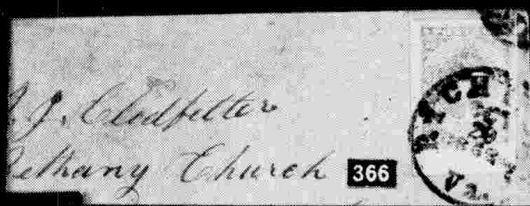 J. Clodfelter
Bethany Church
366
CH
Va.